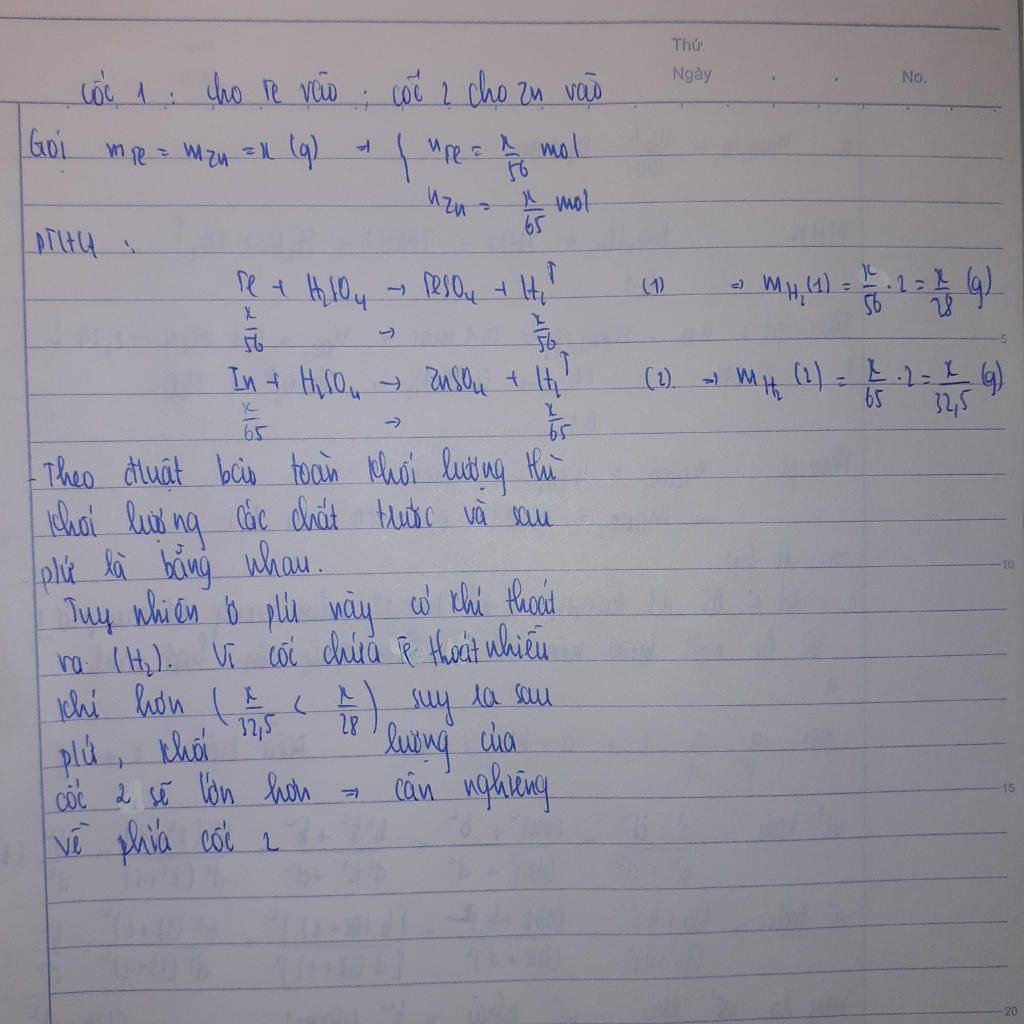 Thứ
Ngày . . No.
cốc 1 : cho Fe vào ; cốc 2 cho Zn vào
Gọi mFe = mZn = x (g) → { nFe = x/56 mol
nZn = x/65 mol
PTHH :
Fe + H₂SO₄ → FeSO₄ + H₂↑ (1) ⇒ mH₂(1) = x/56 . 2 = x/28 (g)
x/56 → x/56
Zn + H₂SO₄ → ZnSO₄ + H₂↑ (2). ⇒ mH₂ (2) = x/65 . 2 = x/32,5 (g)
x/65 → x/65
- Theo đluật bảo toàn khối lượng thì
khối lượng các chất trước và sau
pứ là bằng nhau.
Tuy nhiên ở pứ này có khí thoát
ra (H₂). Vì cốc chứa Fe thoát nhiều
khí hơn (x/32,5 < x/28) suy ra sau
pứ, khối lượng của
cốc 2 sẽ lớn hơn ⇒ cân nghiêng
về phía cốc 2
5
10
15
20